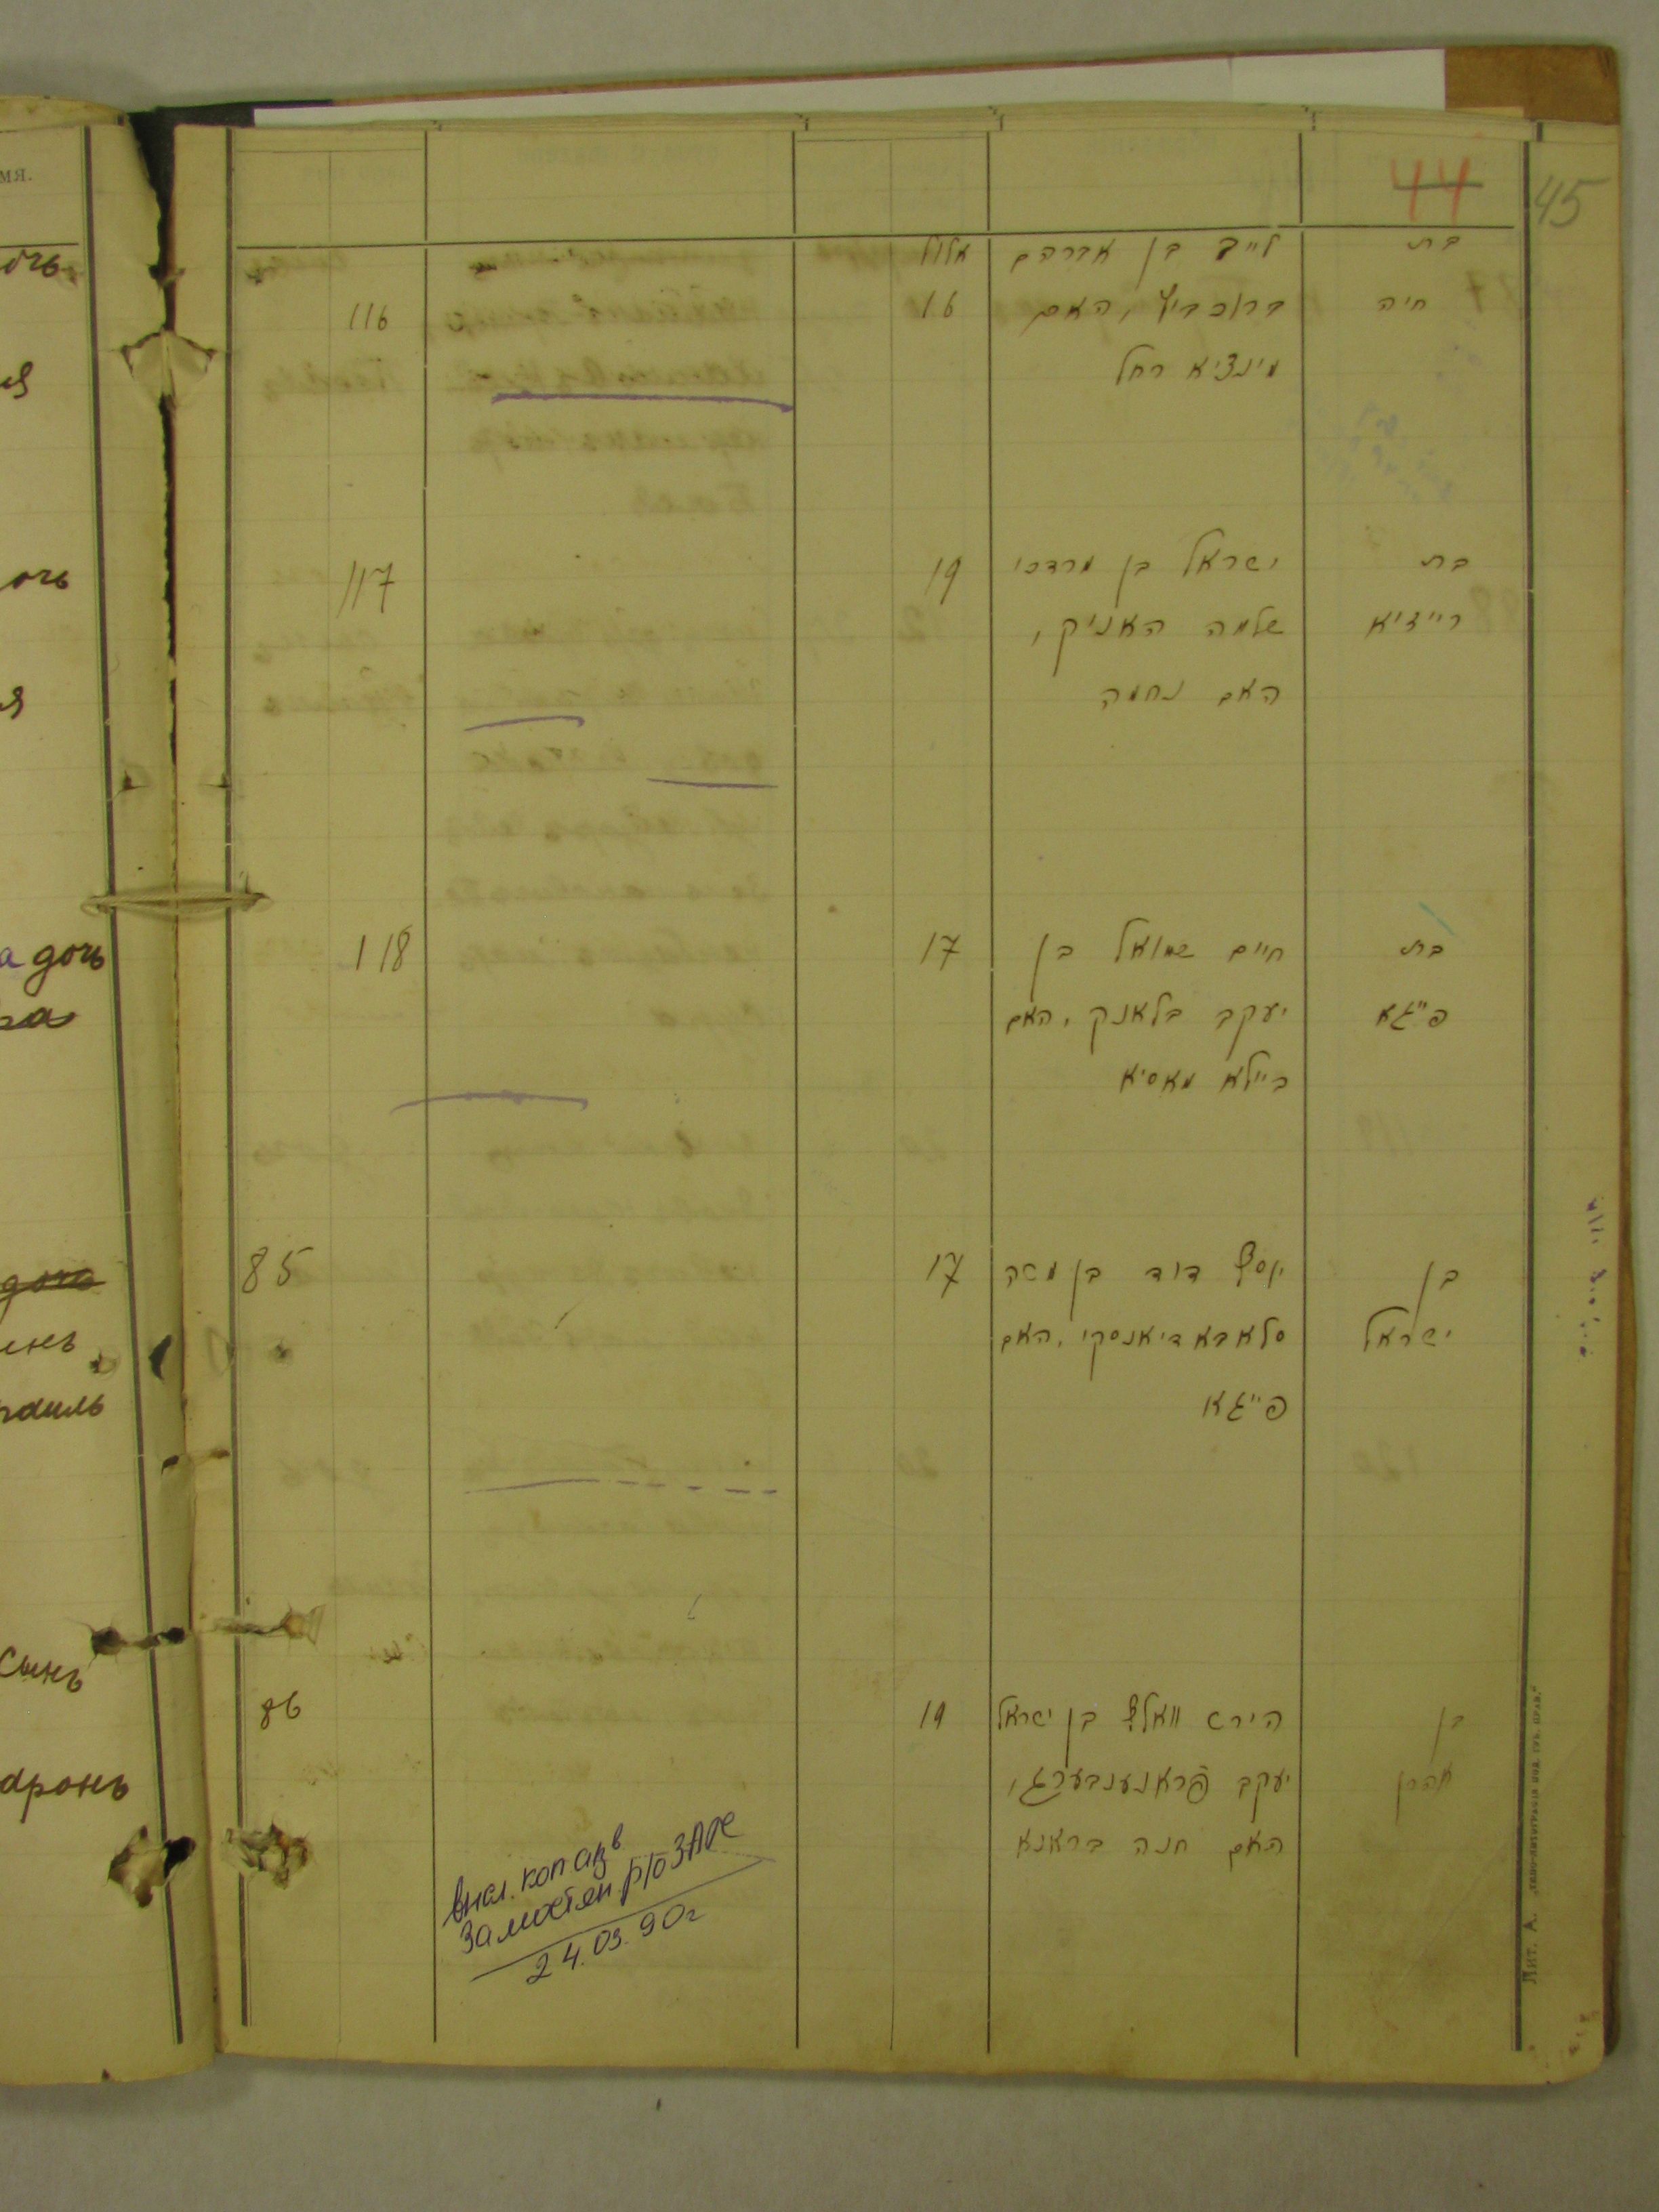 44 45
בת
חיה
לייב בן אברהם
ברוכביץ, האם
מינציא רחל
אלול
16
116
בת
ריידיא
ישראל בן מרדכי
שלמה האניק,
האם נחמה
19
117
בת
פייגא
חיים שמואל בן
יעקב בלאנק, האם
ביילא מאסיא
17
118
בן
ישראל
יוסף דוד בן משה
סלאבאדיאנסקי, האם
פייגא
17
85
בן
אהרן
הירש וואלף בן ישראל
יעקב פראנענבערג,
האם חנה בראנא
19
86
Замостян р/о ЗАГС
24.03.90г
мя.
очь
я
очь
я
а дочь
ра
дочь
ынъ
раиль
сынъ
аронъ
Лит. А.